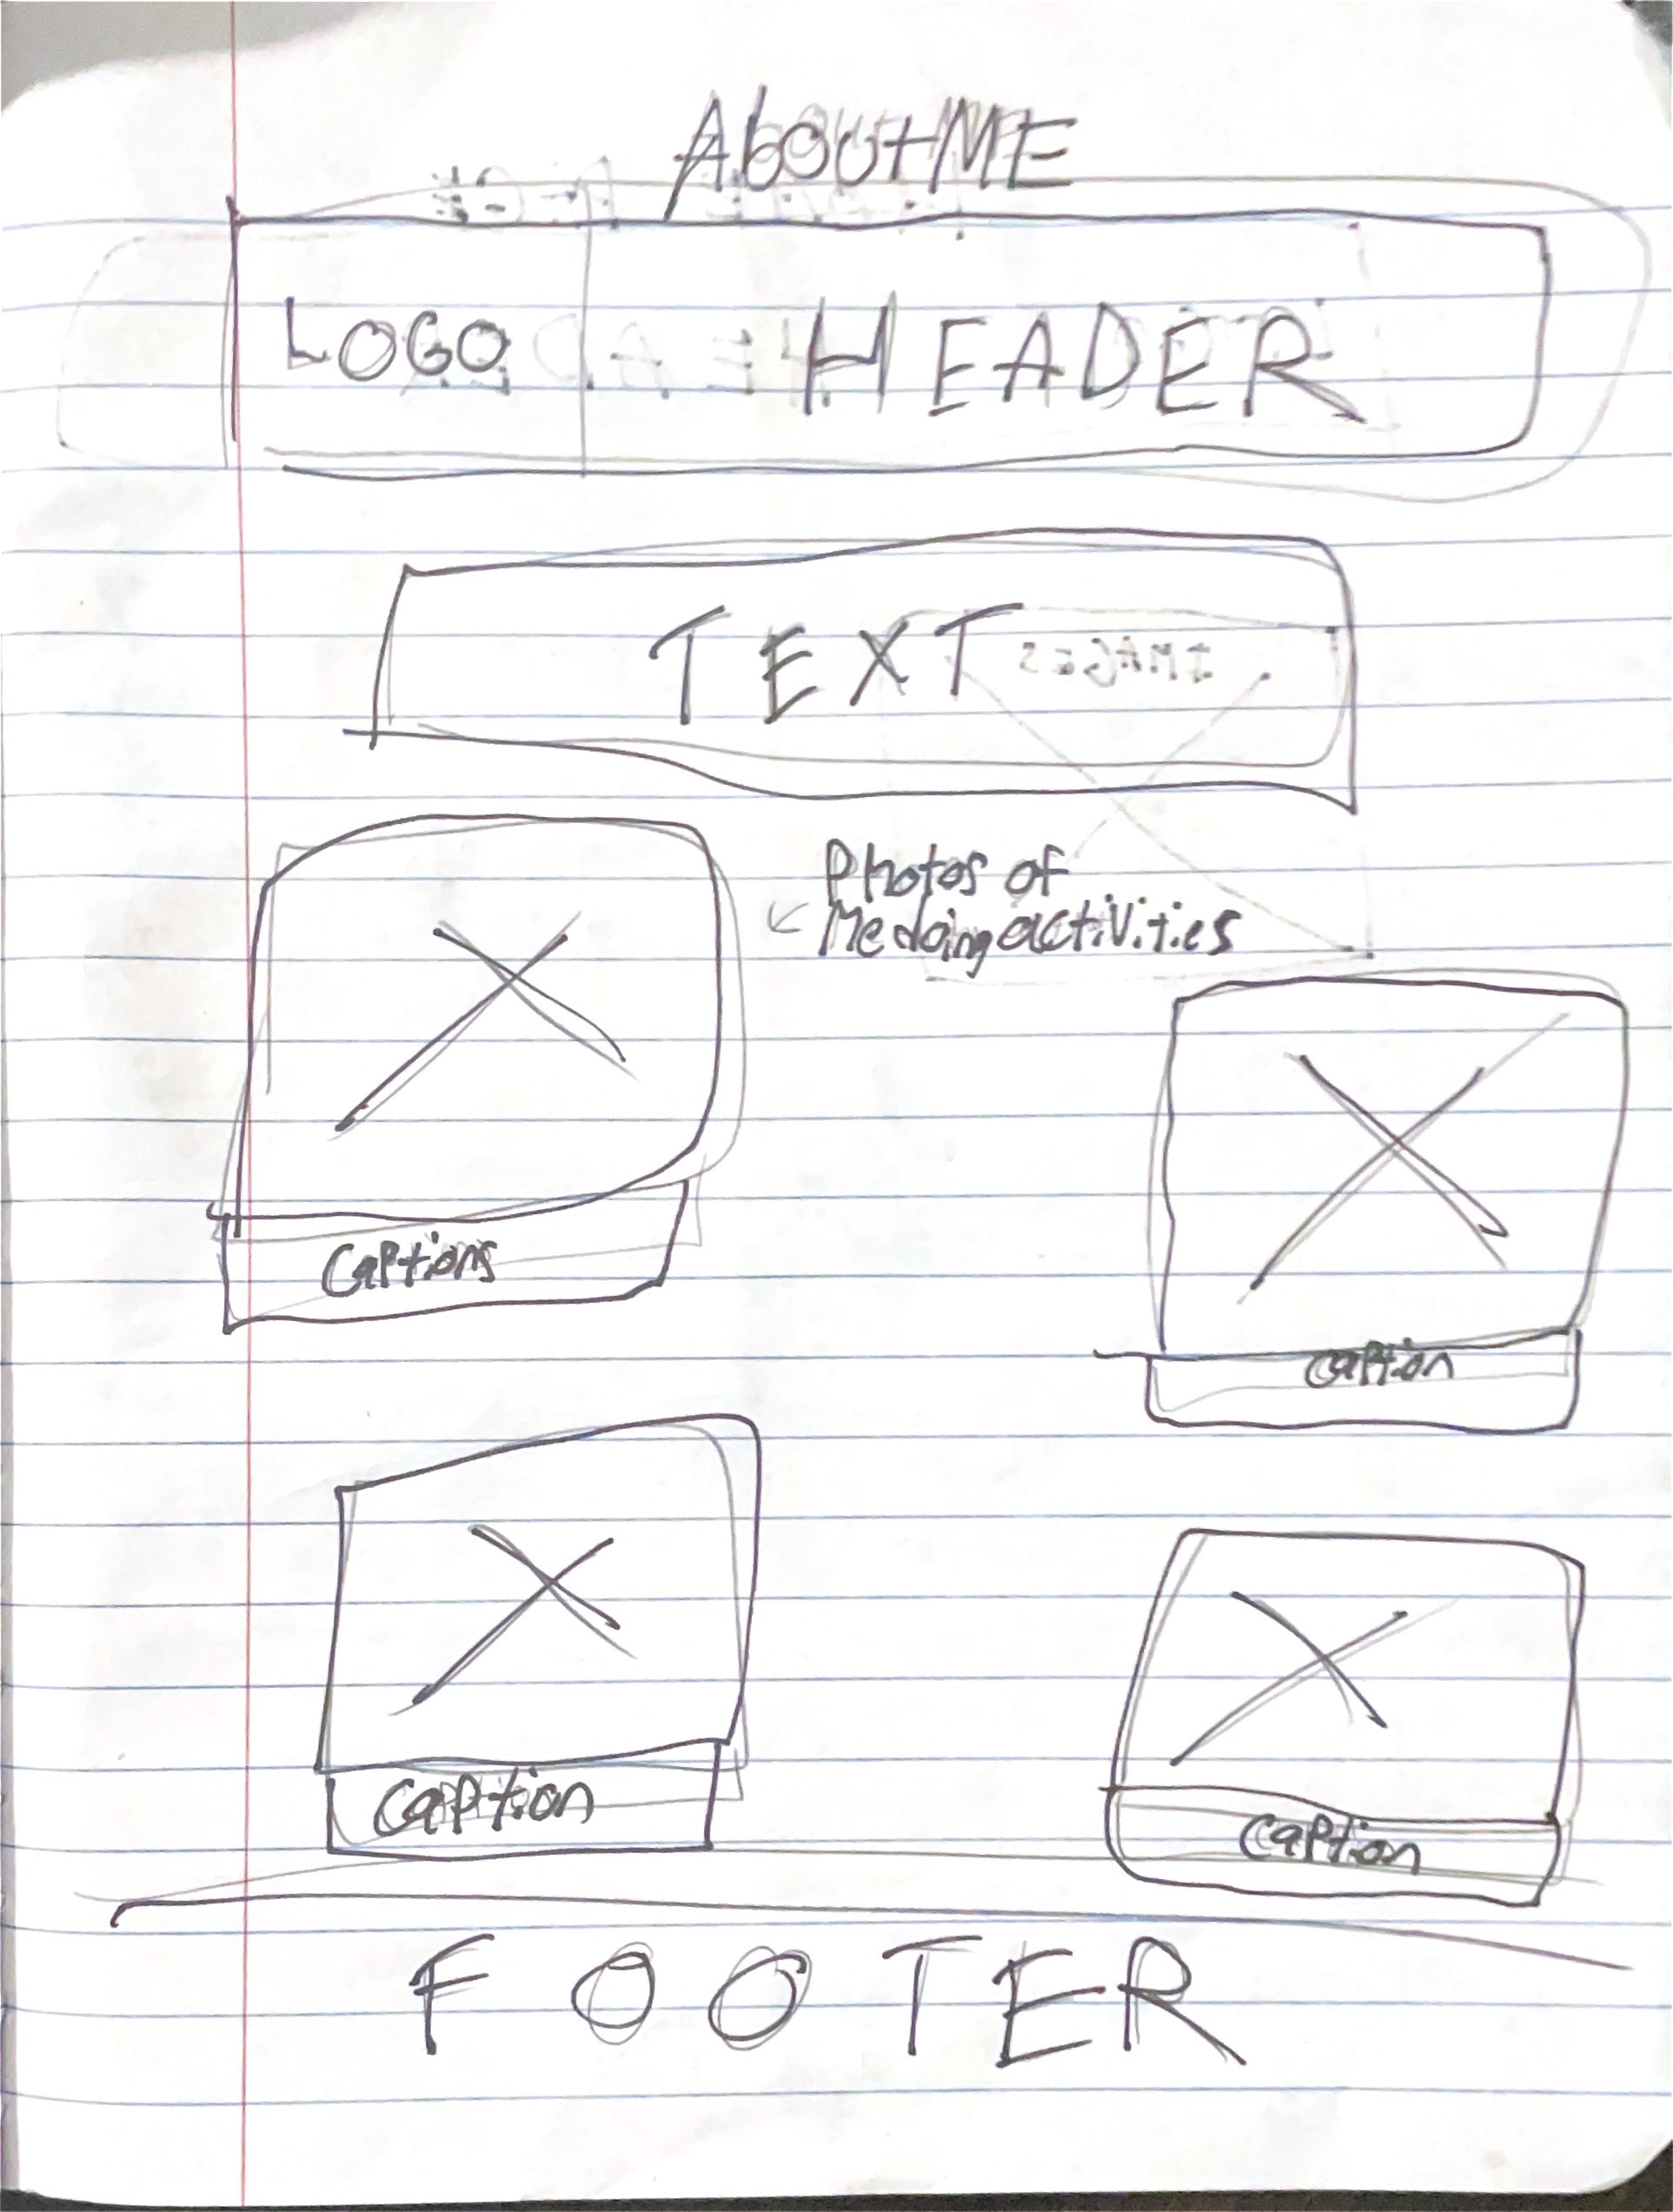 About ME
LOGO HEADER
TEXT
IMAGES
Photos of
Me doing activities
Captions
Caption
Caption
Caption
FOOTER